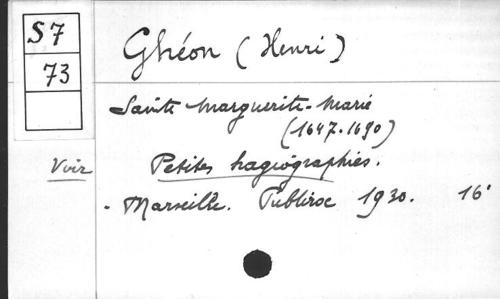 S7
73
Ghéon (Henri)
Sainte Marguerite-Marie
(1647-1690)
Voir Petites hagiographies.
- Marseille. Publiroc 1930. 16°